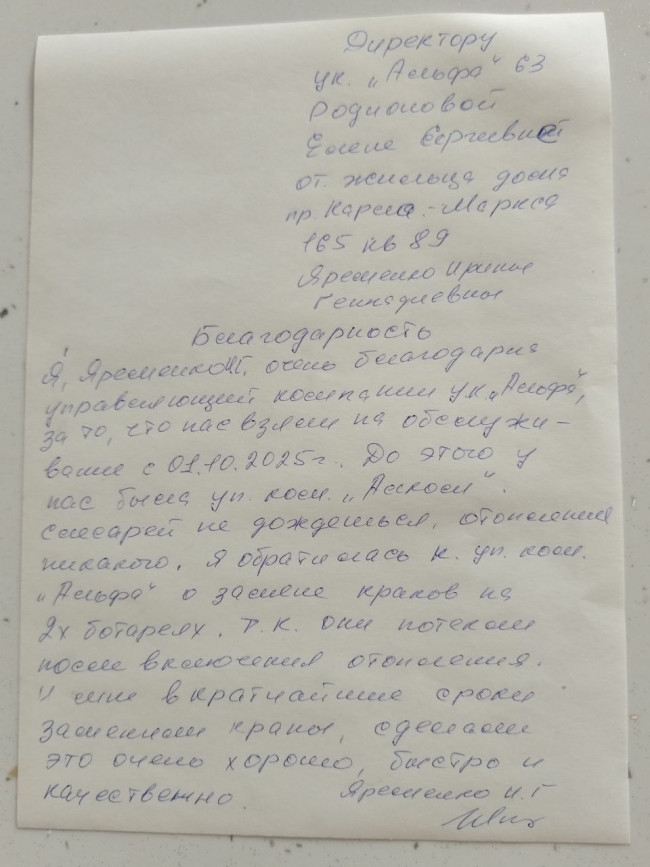 Директору
ук. „Альфа“ 63
Родионовой
Елене Сергеевной
от. жильца дома
пр. Карла.-Маркса
165 кв 89
Яременко Ирины
Геннадиевны
Благодарность
Я, Яременко И.Г. очень благодарна
управляющий компании ук „Альфа“,
за то, что нас взяли на обслужи-
вание с 01.10.2025г.. До этого у
нас была уп. ком. „Аском“.
слесарей не дождешься, отопления
никакого. Я обратилась к. уп. ком.
„Альфа“ о замене кранов на
2х ботареях. т.к. они потекли
после включения отопления.
И мне в кратчайшие сроки
заменили краны, сделали
это очень хорошо, быстро и
качественно. Яременко И.Г